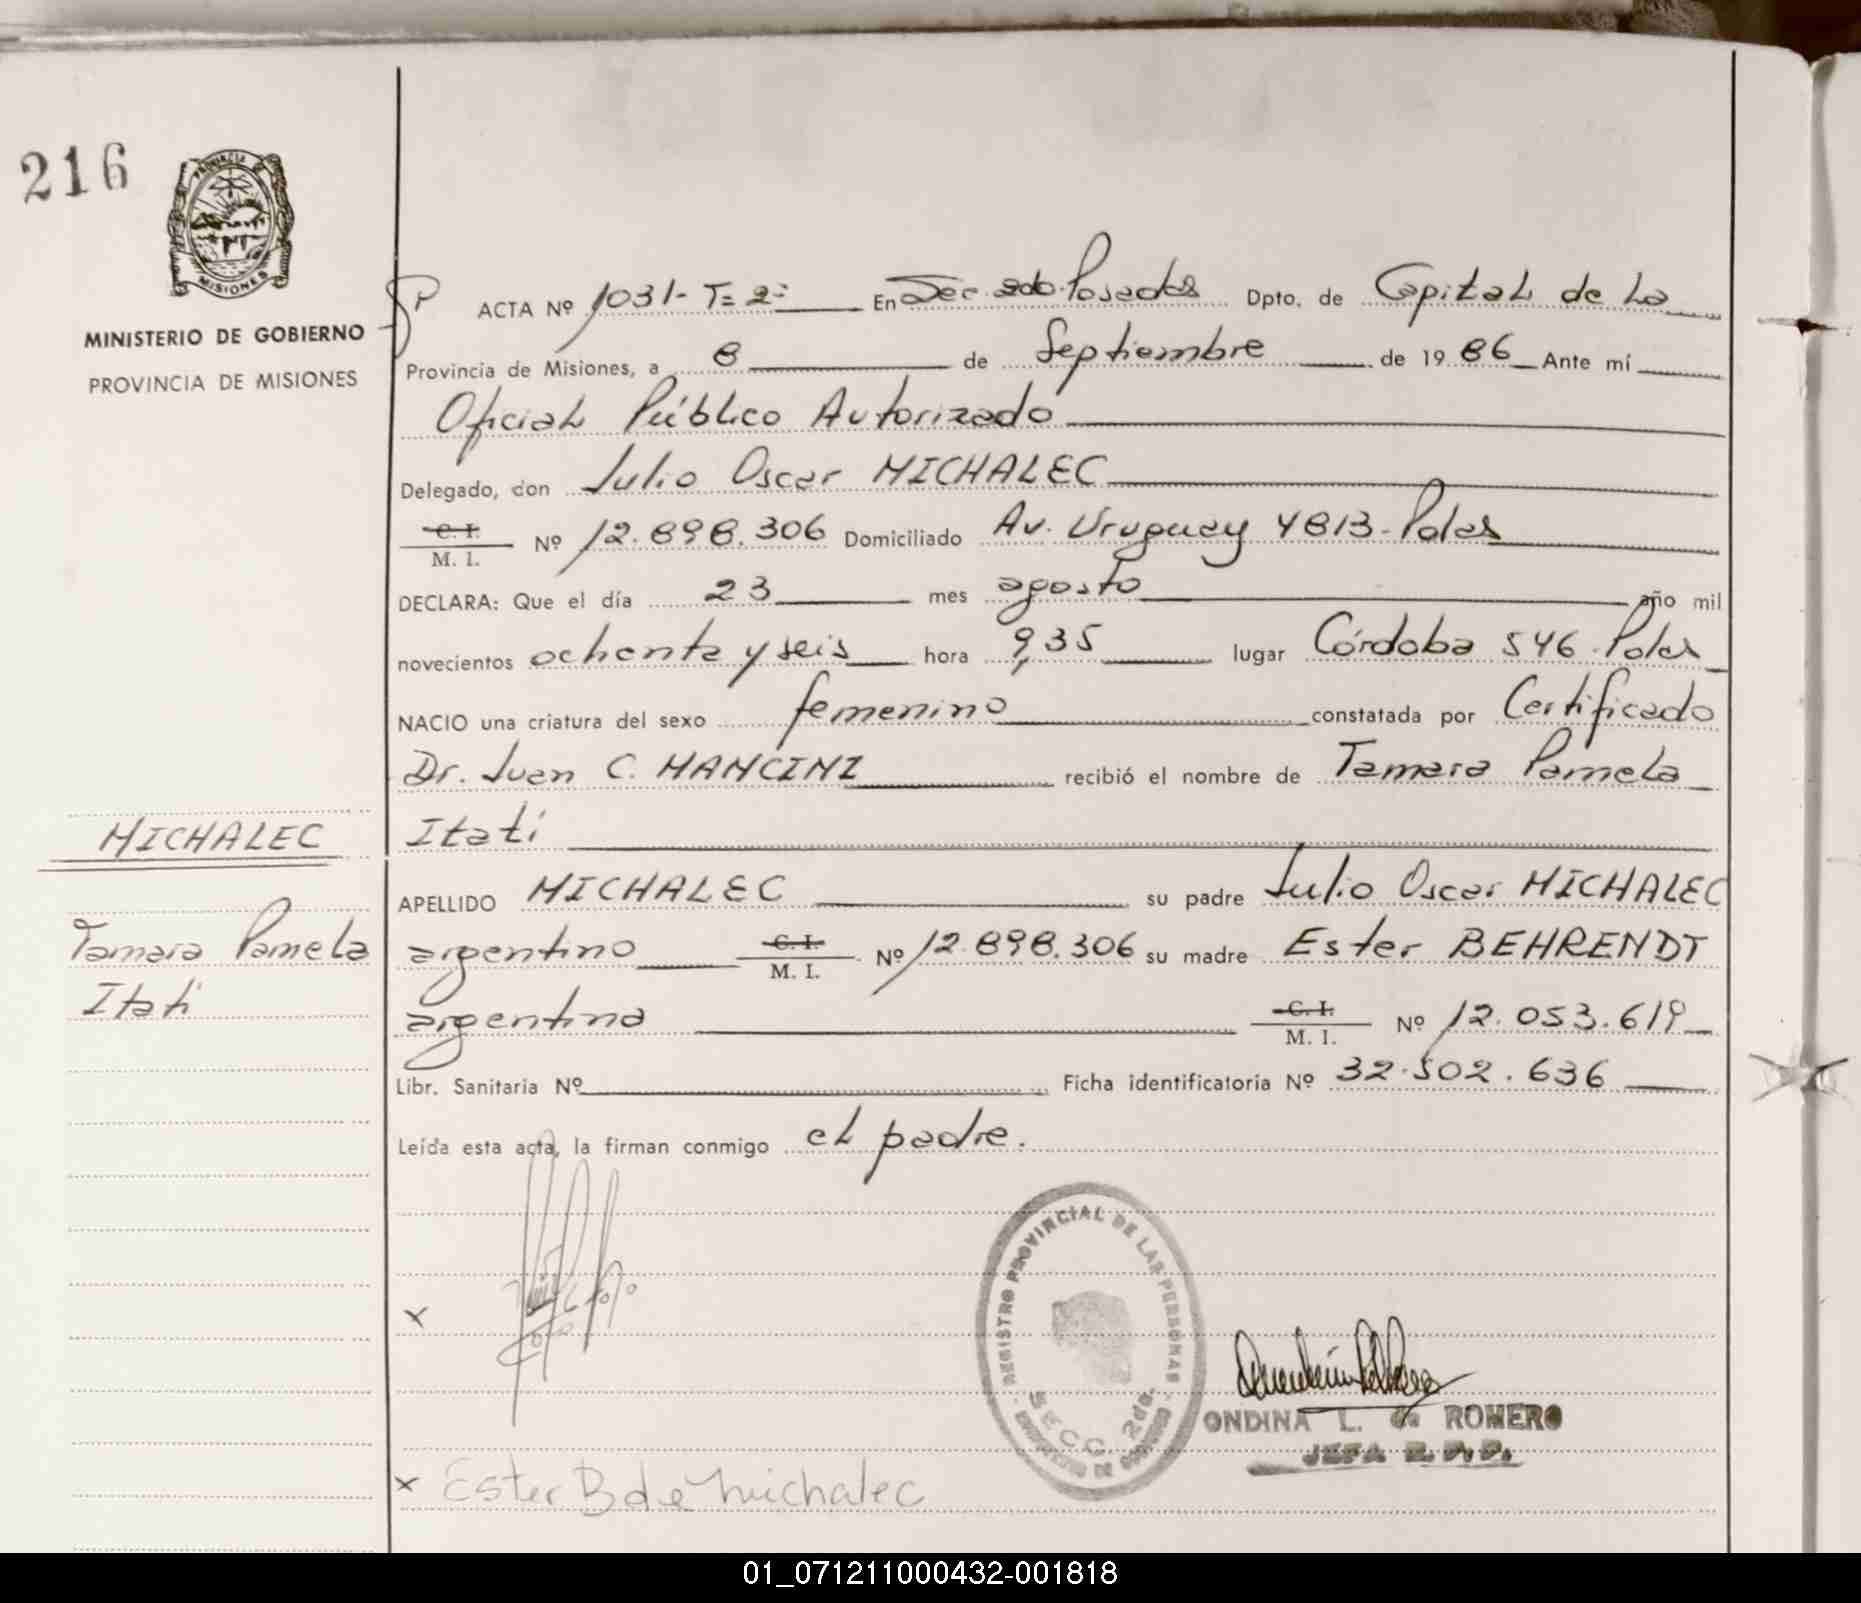 216
PROVINCIA DE
MISIONES
MINISTERIO DE GOBIERNO
PROVINCIA DE MISIONES
ACTA Nº 1031- T= 2= En Sec. 2do. Posadas Dpto. de Capital de La
Provincia de Misiones, a 8 de Septiembre de 1986 Ante mí
Oficial Público Autorizado
Delegado, don Julio Oscar MICHALEC
C. I.
M. I. Nº 12.898.306 Domiciliado Av. Uruguay 4813-Pdas
DECLARA: Que el día 23 mes agosto año mil
novecientos ochenta y seis hora 9,35 lugar Córdoba 546-Pdas
NACIO una criatura del sexo femenino constatada por Certificado
Dr. Juan C. MANCINI recibió el nombre de Tamara Pamela
Itatí
MICHALEC
Tamara Pamela
Itatí
APELLIDO MICHALEC su padre Julio Oscar MICHALEC
argentino C. I. M. I. Nº 12.898.306 su madre Ester BEHRENDT
argentina C. I. M. I. Nº 12.053.619
Libr. Sanitaria Nº Ficha identificatoria Nº 32.502.636
Leída esta acta, la firman conmigo el padre.
REGISTRO PROVINCIAL DE LAS PERSONAS
SECC. 2da.
ONDINA L. de ROMERO
JEFA R.P.P.
x
x Ester B de Michalec
01_071211000432-001818